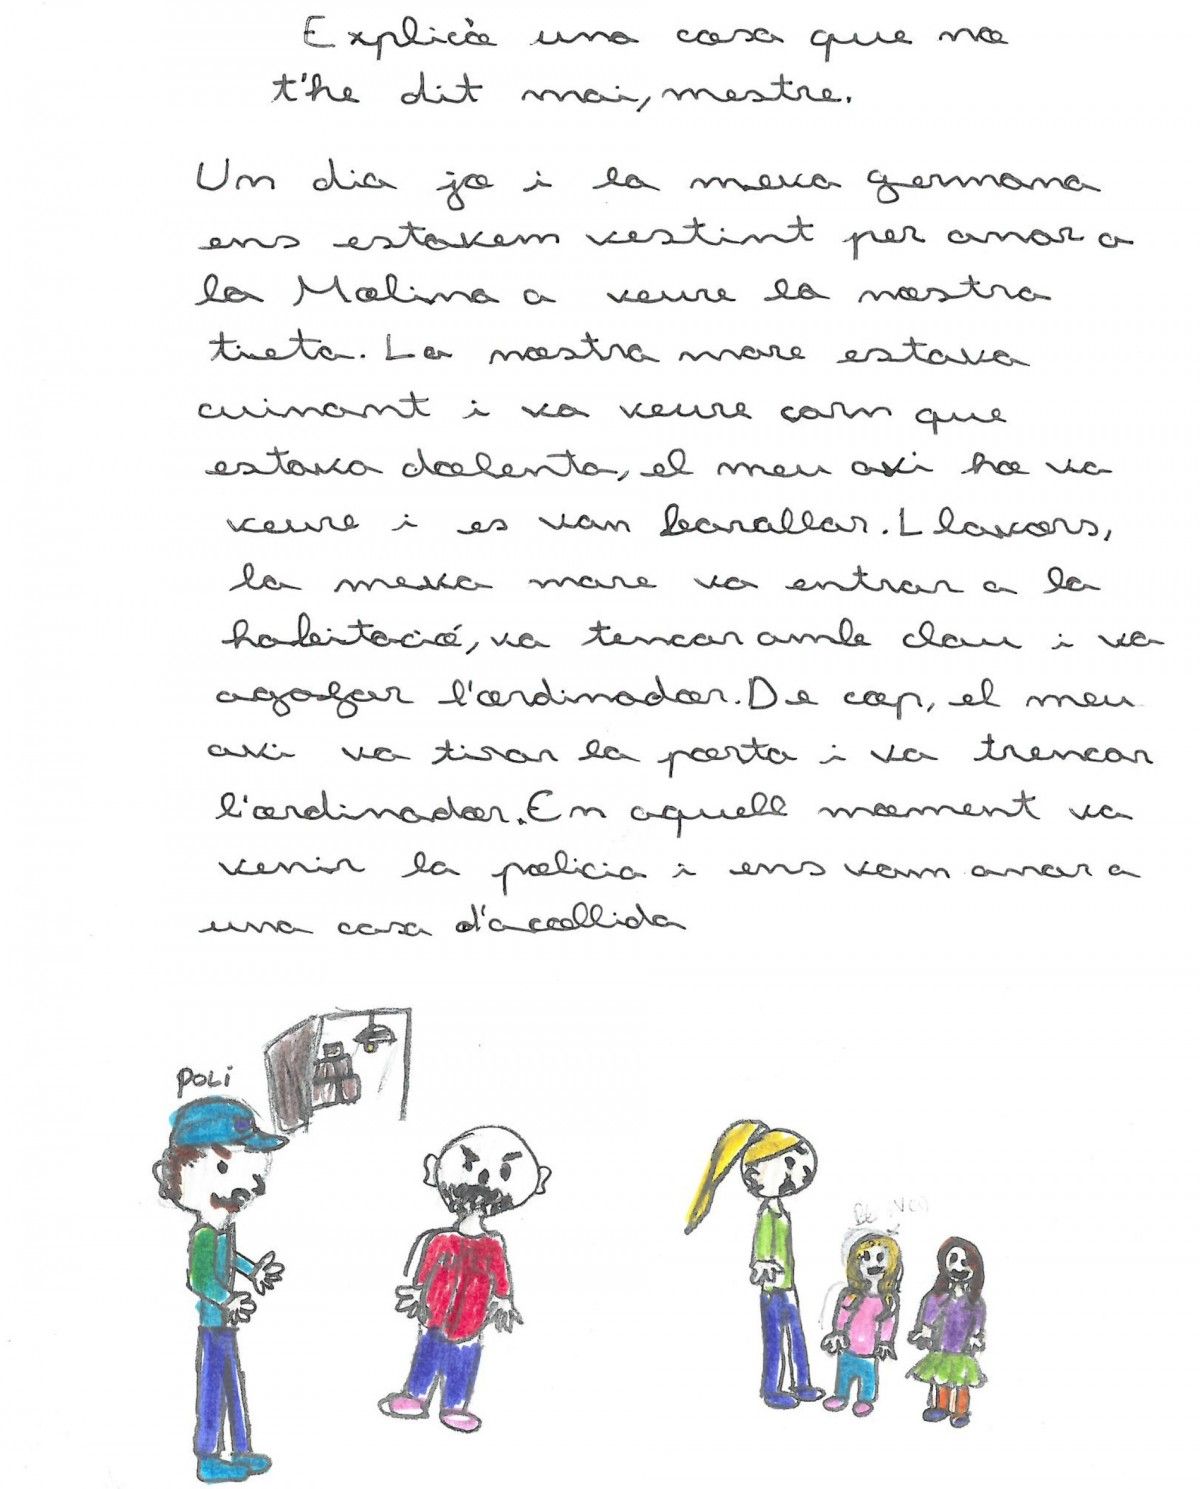 Explica una cosa que no
t'he dit mai, mestre.
Un dia jo i la meva germana
ens estavem vestint per anar a
la Molina a veure la nostra
tieta. La nostra mare estava
cuinant i va veure carn que
estava dolenta, el meu avi ho va
veure i es van barallar. Llavors,
la meva mare va entrar a la
habitació, va tencar amb clau i va
agafar l'ordinador. De cop, el meu
avi va tirar la porta i va trencar
l'ordinador. En aquell moment va
venir la policia i ens vam anar a
una casa d'acollida
POLI